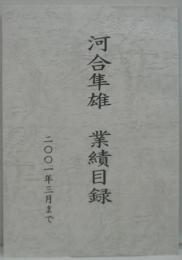 河合隼雄 業績目録
二〇〇一年三月まで